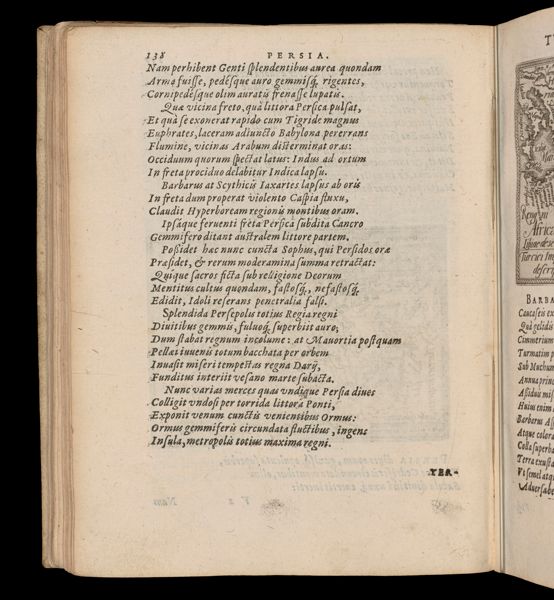 138 PERSIA.
Nam perhibent Genti splendentibus aurea quondam
Arma fuisse, pedésque auro gemmisq́, rigentes,
Cornipedésque olim auratis frenasse lupatis.
Quæ vicina freto, quà littora Persica pulsat,
Et quà se exonerat rapido cum Tigride magnus
Euphrates, laceram adiuncto Babylona pererrans
Flumine, vicinas Arabum disterminat oras:
Occiduum quorum spectat latus: Indus ad ortum
In freta prociduo delabitur Indica lapsu.
Barbarus at Scythicis Iaxartes lapsus ab oris
In freta dum properat violento Caspia fluxu,
Claudit Hyperboream regionis montibus oram.
Ipsáque feruenti freta Persica subdita Cancro
Gemmifero ditant australem littore partem.
Possidet hac nunc cuncta Sophus, qui Persidos oræ
Præsidet, & rerum moderamina summa retractat:
Quique sacros ficta sub religione Deorum
Mentitus cultus quondam, fastosq́, nefastosq́
Edidit, Idoli reserans penetralia falsi.
Splendida Persepolis totius Regia regni
Diuitibus gemmis, fuluoq́, superbijt auro;
Dum stabat regnum incolume: at Mauortia postquam
Pellæi iuuenis totum bacchata per orbem
Inuasit miseri tempestas regna Darij,
Funditus interiit vesano marte subacta.
Nunc varias merces quas vndique Persia diues
Colligit vndosi per torrida littora Ponti,
Exponit venum cunctis venientibus Ormus:
Ormus gemmiferis circundata fluctibus, ingens
Insula, metropolis totius maxima regni.
TER-
Caucaseis
Quà gelidis
Cimmerium
Turmatim
Annua
Huius enim
Atque colora
Colla superba
Terra exusta
Vt semel atq́